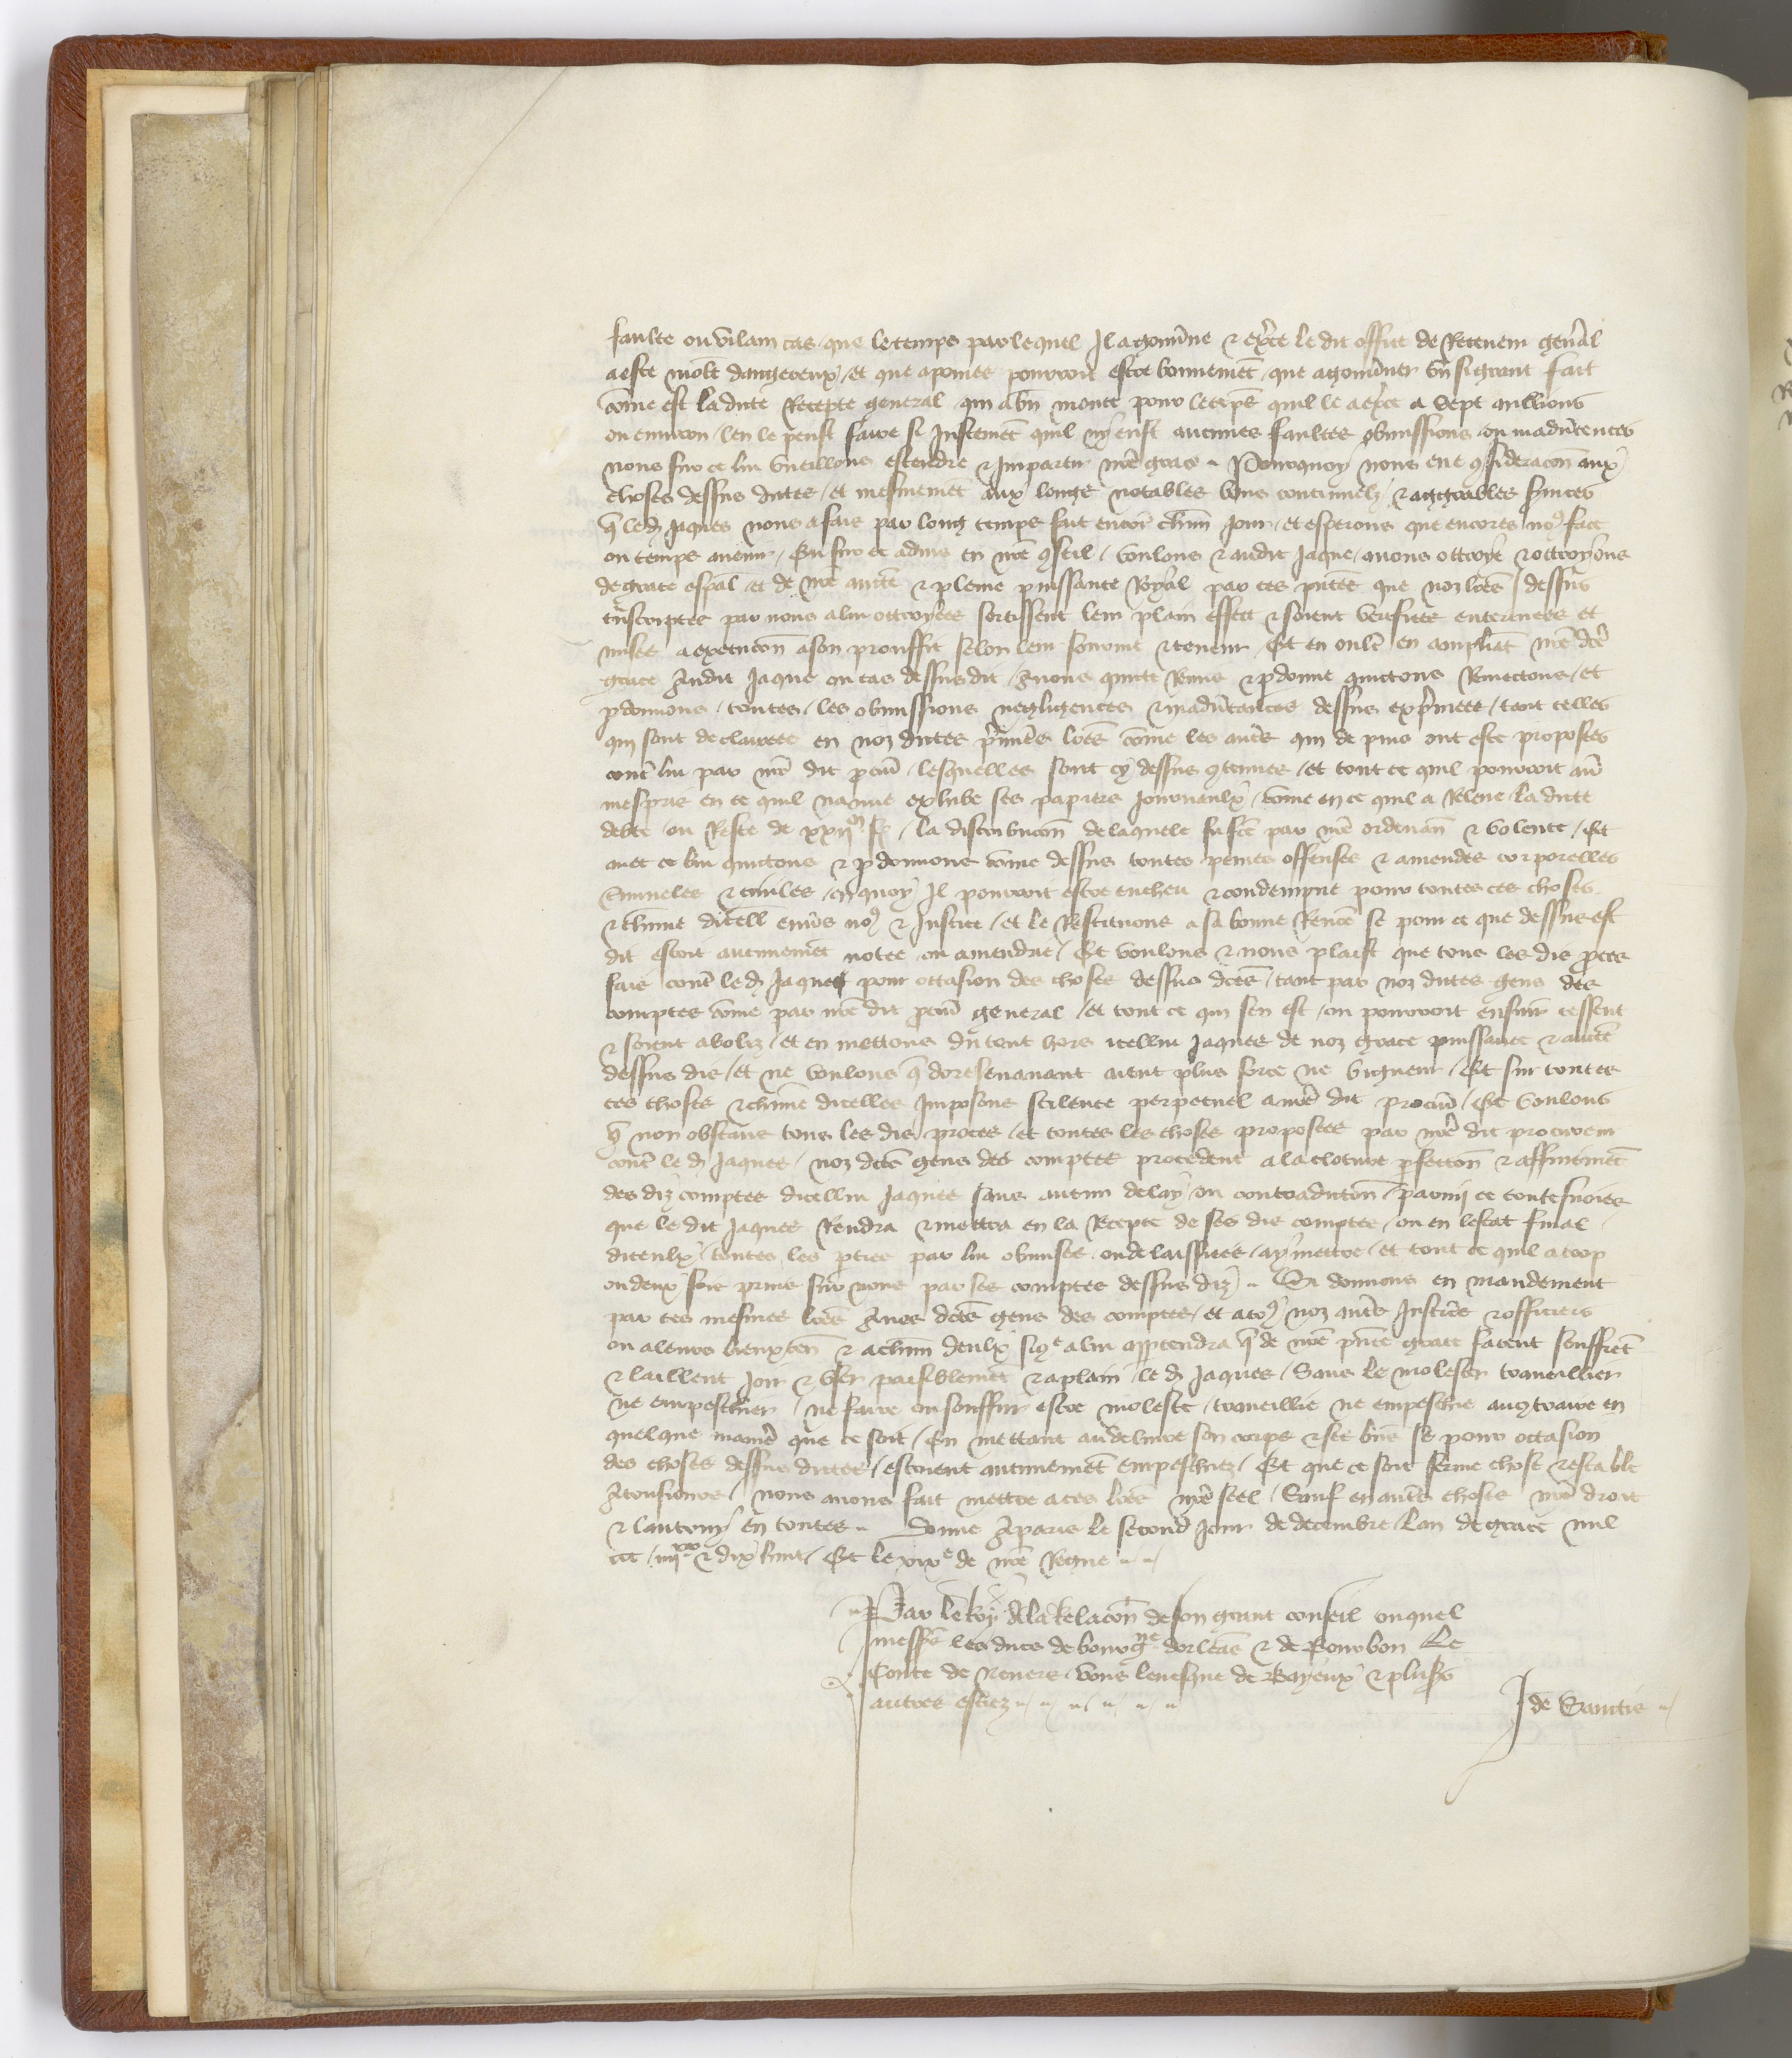 faulte ou vilain cas que le temps par lequel Il a gouv̄ne & exc̄e le dit office de Receveur gen̄al
a este molt dangereux / et que a poines pourroit estre bonnemēt que a gouv̄ner un si grant fait
cōme est la dicte Recepte general qui a bn̄ monte pour le tēps quil le a exc̄e a sept millions
ou environ / len le peust faire si Justemēt quil ny eust aucunes faultes obmissions ou inadv̄tences
nous sur ce lui vueillons estendre & Impartir nr̄e grace Pourquoy nous eue ꝯsideracōn aux
choses dessus dictes / et mesmemēt aux longs notables bons continuelz & aggreables s̄vices
q̄ led Jaques nous a fais par long temps fait encores chūn Jour / et esperons que encores no⁹ face
ou temps avenir / Eu sur ce advis en nr̄e ꝯseil / voulons & audit Jaque avons ottroye & ottroyons
de grace esp̄al et de nr̄e auctē & pleine puissance Royal par ces pn̄tes que noz lr̄es dessus
tn̄scriptes par nous a lui ottroyees sortissent leur plain effect & soient verifiees enterinees et
mises a execucōn a son prouffit selon leur fourme & teneur / Et en oultē en ampliāt nr̄e dc̄e
grace Audit Jaque ou cas dessus dit / Avons quitte Remis & ꝑdonne quictons Remectons / et
ꝑdonnons / toutes / les obmissions negligences & inadv̄tances dessus exp̄mees / tant celles
qui sont declairees en noz dictes p̄mieres lr̄es cōme les aut̄es qui de puis ont este proposees
cont̄e lui par nr̄e dit procūr / lesquelles sont cy dessus ꝯtenues / et tout ce quil pourroit avoir
mespris en ce quil na mie exhibe ses papiers Journaulx / cōme en ce quil a Releve la dicte
debte / ou Reste de xxijᵐ fr̄ / la distribucōn de laquele fu fc̄e par nr̄e ordenan̄ & volente / Et
avec ce lui quictons & ꝑdonnons cōme dessus toutes peines offenses & amendes corporelles
Crimineles & civiles / en quoy Il pourroit estre encheu & condempne pour toutes ces choses
& chūne dicell̄ env̄s no⁹ & Justice / et le Restituons a sa bonne Renōee se pour ce que dessus est
dit estoit aucunemēt notee ou amendrie / Et voulons & nous plaist que tous les dis proces
fais cont̄e led Jaques pour occasion des choses dessus dc̄es / tant par noz dictes gens des
comptes cōme par nr̄e dit procūr general / et tout ce qui sen est / ou pourroit ensuir cessent
& soient aboliz / et en mettons du tout hors icellui Jaques de noz grace puissance & auctē
dessus dis / et ne voulons q̄ doresenavant aient plus force ne vigueur / Et sur toutes
ces choses & chūne dicelles Imposons scilence perpetuel a nr̄e dit procūr / Et voulons
q̄ non obstans tous les dis proces / et toutes les choses proposees par nr̄e dit procureur
cont̄e le d Jaques / noz dc̄es gens des comptes procedent a la closture ꝑfectōn & affinemēt
des diz comptes dicellui Jaques sans aucun delay ou contradictōn / parmi ce toutesvoies
que le dit Jaques Rendra & mettra en la Recepte de ses dis comptes / ou en lestat final
diceulx / toutes les ꝑties par lui obmises ou delaissiees / a y mettre / et tout ce quil a trop
ou deux fois prins sur nous par ses comptes dessus diz Si donnons en mandement
par ces mesmes lr̄es A nos dc̄es gens des comptes / et a to⁹ noz aut̄es Justic̄es & officiers
ou a leurs lieuxten̄ & a chūn deulx sicōe a lui appartendra q̄ de nr̄e pn̄te grace facent seuffrēt
& laissent Joir & user paisiblemēt & a plain / le d Jaques / sans le molester travaillier
ne empeschier / ne faire ou souffrir estre moleste / traveillie ne empeschie au ꝯtraire en
quelque manīe que ce soit / En mettant au delivre son corps & ses bn̄s se pour occasion
des choses dessus dictes / estoient aucunemēt empeschiez / Et que ce soit ferme chose & estable
A tousiours / nous avons fait mettre a ces lr̄es nr̄e seel / Sauf en aut̄es choses nr̄e droit
& lautruy en toutes Donne A paris le second Jour de decembre / lan de grace mil
ccc / iiijˣˣ & dix huit / Et le xixᵉ de nr̄e Regne
Par le Roy A la Relacōn de son grant conseil ouquel
messrs̄ les ducs de bourgⁿᵉ dorleās & de Bourbon Le
Conte de Nevers vous levesque de Bayeux & plusrs̄
autres estiez
J de Sanctis